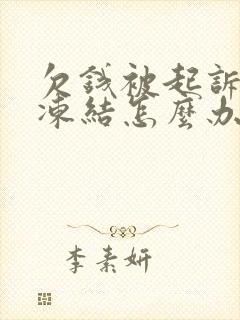 欠錢被起訴
凍結怎麼办
李素妍